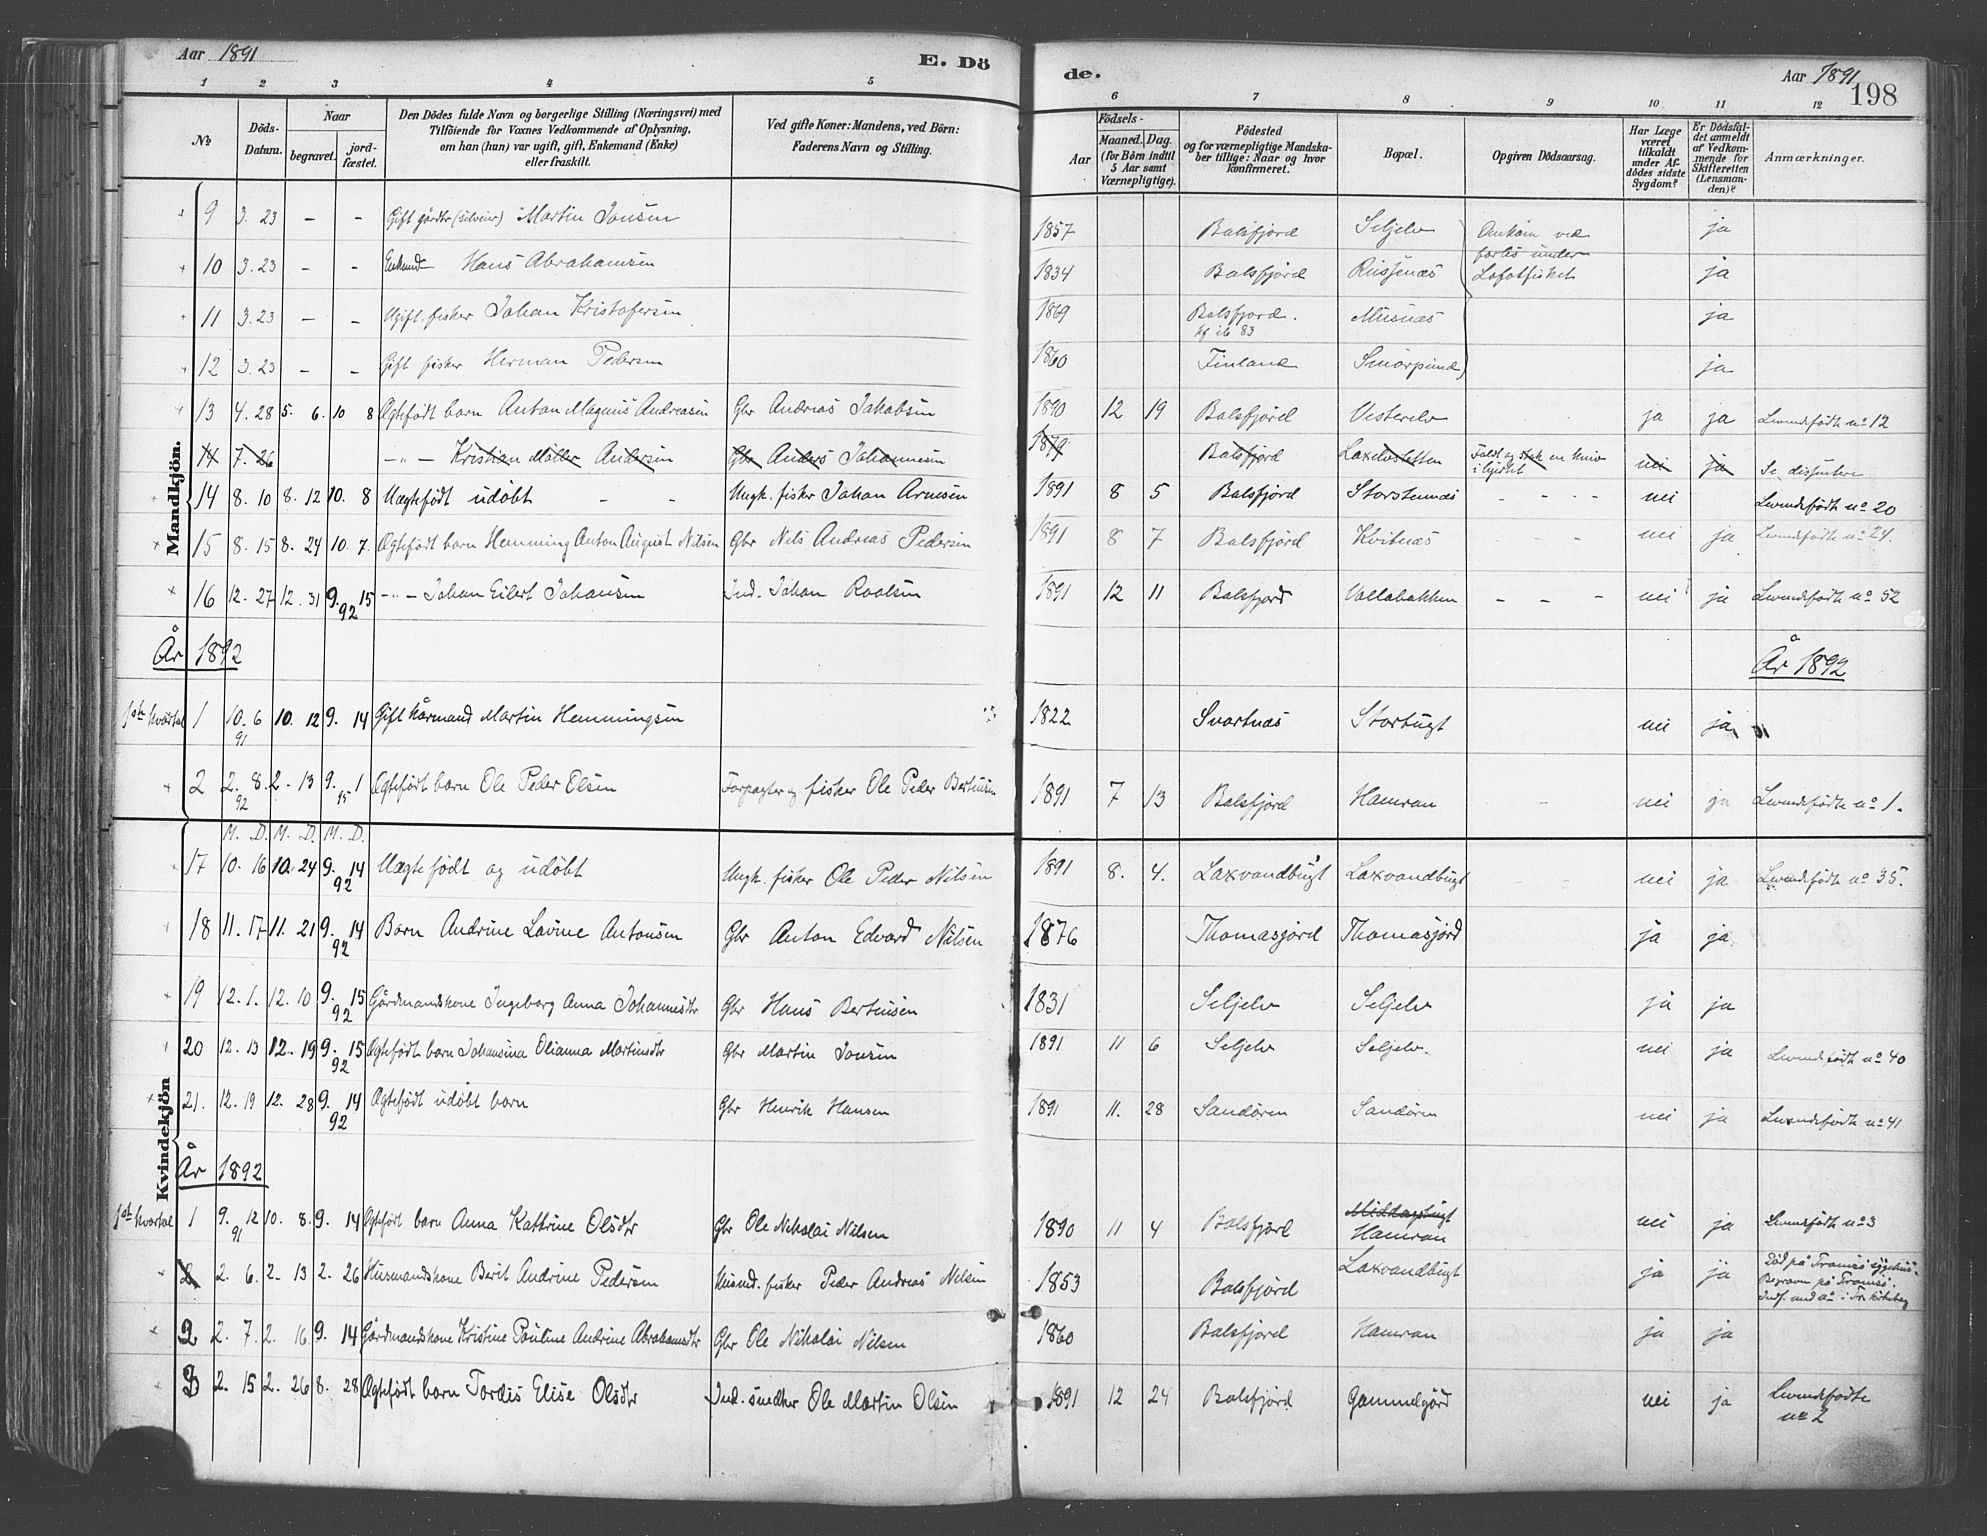 Aar 1891 E. Dö de. Aar 1891 198
1 2 3 4 5 6 7 8 9 10 11 12
No. Döds-Datum. Naar begravet. jordfæstet. Den Dödes fulde Navn og borgerlige Stilling (Næringsvei) med Tilföiende for Voxnes Vedkommende af Oplysning, om han (hun) var ugift, gift, Enkemand (Enke) eller fraskilt. Ved gifte Koner: Mandens, ved Börn: Faderens Navn og Stilling. Aar Födsels- Maaned. Dag. (for Börn indtil 5 Aar samt Værnepligtige). Födested og for værnepligtige Mandskaber tillige: Naar og hvor konfirmeret. Bopæl. Opgiven Dödsaarsag. Har Læge været tilkaldt under Afdödes sidste Sygdom? Er Dödsfaldet anmeldt af Vedkommende for Skifteretten (Lensmanden)? Anmærkninger.
Mandkjön.
9 3. 23 – – Gift gårdbr (selveier) Martin Jonsen 1857 Balsfjord Seljelv Omkom ved ja
10 3. 23 – – Enkemd Hans Abrahamsen 1834 Balsfjord Russenæs forlis under Lofotfisket ja
11 3. 23 – – Ugift fisker Johan Kristofersen 1869 Balsfjord. kf ib 83 Musnæs ja
12 3. 23 – – Gift fisker Herman Pedersen 1860 Finland Smörpund ja
13 4. 28 5. 6. 10 8 Ægtefödt barn Anton Magnus Andreasen Gbr Andreas Jakobsen 1890 12 19 Balsfjord Vesterelv ja ja Levendefödte no 12
14 7. 26 –„– Kristian Møller Andersen Gbr Anders Johannesen 1879 Balsfjord Laxelvsletten Faldt og stak en kniv i hjertet nei ja Se
14 8. 10 8. 12 10. 8 Uægtefödt udöbt – – Ungk. fisker Johan Arnesen 1891 8 5 Balsfjord Storstennæs – – – nei Levendefödte no 20
15 8. 15 8. 24 10. 7. Ægtefödt barn Hemming Anton August Nilsen Gbr Nils Andreas Pedersen 1891 8 7 Balsfjord Kvitnæs – – – nei ja Levendefödte no 24.
16 12. 27 12. 31 9. 92 15 –„– Johan Eilert Johansen Ind. Johan Roalsen 1891 12 11 Balsfjord Vollabakken – – – nei ja Levendefödte no 52
År 1892 År 1892
1ste kvartal 1 10. 6 91 10. 12 9. 14 Gift kårmand Martin Hemmingsen 1822 Svartnæs Storbugt nei ja
2 2. 8. 92 2. 13 9. 1 Ægtefödt barn Ole Peder Olsen Forpagter og fisker Ole Peder Bertinsen 1891 7 13 Balsfjord Hamran – – nei ja Levendefödte no 1.
M. D. M. D. M. D.
Kvindekjön
17 10. 16 10. 24 9. 92 14 Uægtefödt og udöbt Ungk. fisker Ole Peder Nilsen 1891 8. 4. Laxvandbugt Laxvandbugt – – nei ja Levendefödte no 35.
18 11. 17 11. 21 9. 92 14 Barn Andrine Lovine Antonsen Gbr Anton Edvard Nilsen 1876 Thomasjord Thomasjord ja ja
19 12. 1. 12. 10 9. 92 15 Gårdmandskone Ingeborg Anna Johannesdtr Gbr Hans Bertiusen 1831 Seljelv Seljelv ja ja
20 12. 13 12. 19 9. 92 15 Ægtefödt barn Johansina Olianna Martinsdtr Gbr Martin Jonsen 1891 11 6 Seljelv Seljelv. nei ja Levendefödte no 40
21. 12. 19 12. 28 9. 92 14 Ægtefödt udöbt barn Gbr Henrik Hansen 1891 11. 28 Sandören Sandören nei ja Levendefödte no 41
År 1892
1ste kvartal 1 9. 12 91 10. 8. 9. 14 Ægtefödt barn Anna Kattrine Olsdtr Gbr Ole Nikolai Nilsen 1890 11 4 Balsfjord Middagsbugt Hamran nei ja Levendefödte no 3
2 2. 6. 2. 13 2. 26 Husmandskone Berit Andrine Pedersen Husmd. fisker Peder Andreas Nilsen 1853 Balsfjord Laxvandbugt ja ja Död på Tromsö sygehus. Begraven på Tromsö. Indf. und no i Tr. kirkebog
2 2. 7. 2. 16 9. 14 Gårdmandskone Kristine Pauline Andrine Abrahamsdtr Gbr Ole Nikolai Nilsen 1860 Balsfjord Hamran ja ja
3 2. 15 2. 26 8. 28 Ægtefödt barn Tordis Elise Olsdtr Ind. snedker Ole Martin Olsen 1891 12 24 Balsfjord Gammelgård nei ja Levendefödte no 2